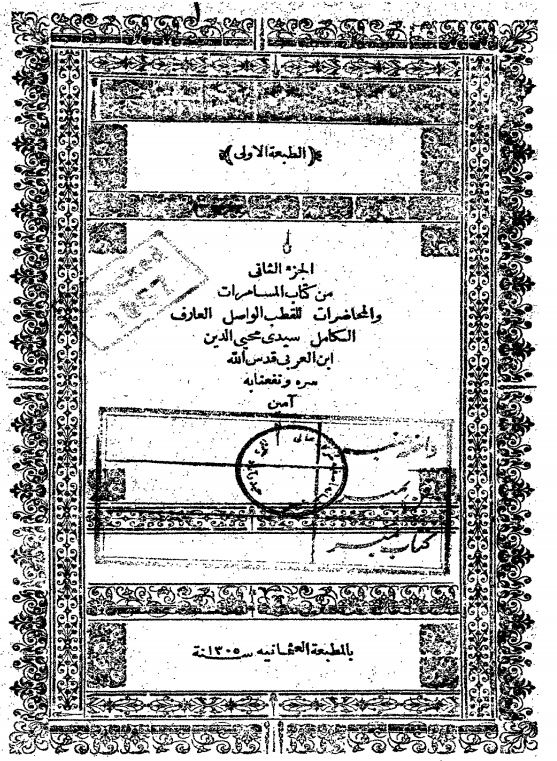 ١
﴿الطبعة الاولى﴾
الجزء الثانى
من كتاب المسامرات
والمحاضرات للقطب الواصل العارف
الكامل سيدى محيى الدين
ابن العربى قدس الله
سره ونفعنا به
آمين
داخله نمبر
كتاب نمبر
بالمطبعة العثمانيه سنة ١٣٠٥